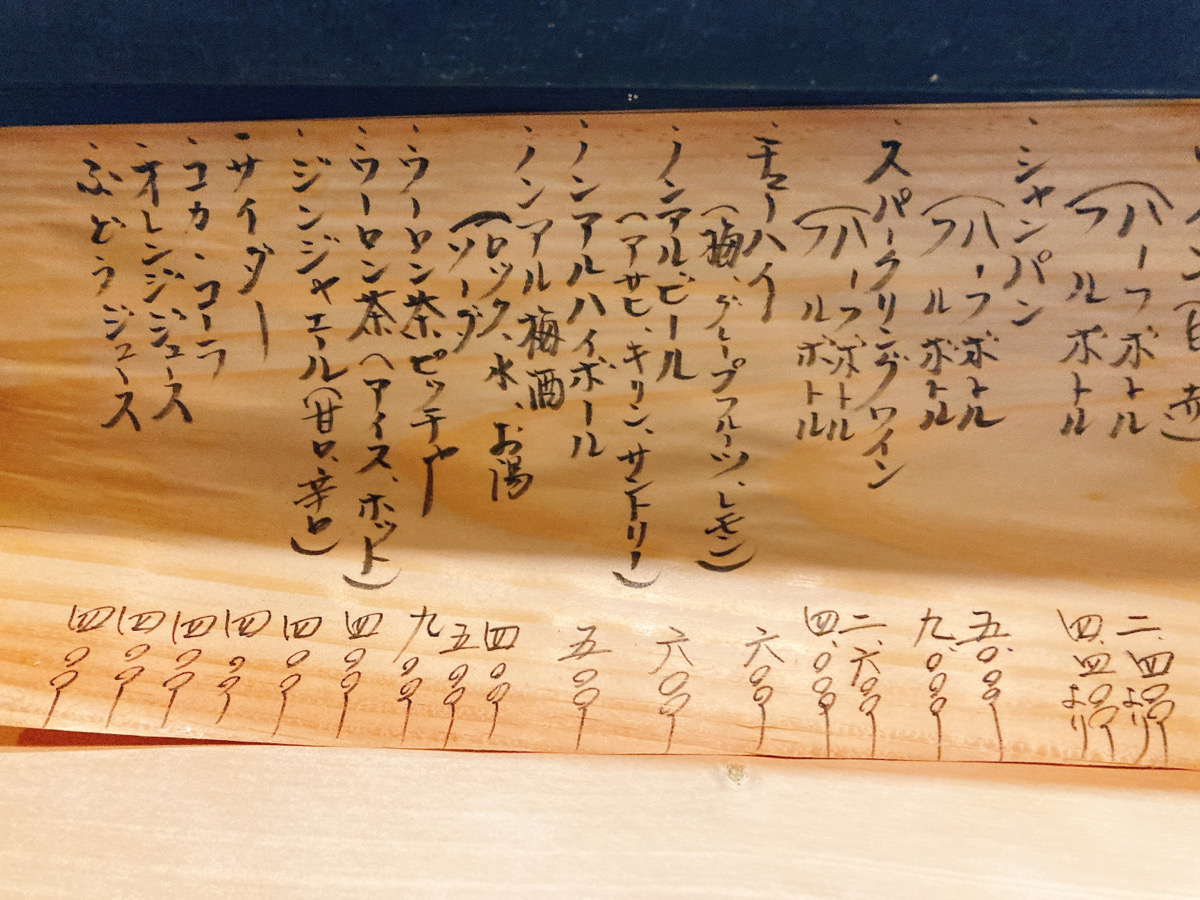 (ハーフボトル 二、四〇〇より
フルボトル 四、四〇〇より
・シャンパン
(ハーフボトル 五、〇〇〇
フルボトル 九、〇〇〇
・スパークリングワイン
(ハーフボトル 二、六〇〇
フルボトル 四、〇〇〇
・チューハイ
(梅、グレープフルーツ、レモン) 六〇〇
・ノンアルビール
(アサヒ、キリン、サントリー) 六〇〇
・ノンアルハイボール 五〇〇
・ノンアル梅酒
(ロック、水、お陽 四〇〇
ソーダ 五〇〇
・ウーロン茶ピッチャー 九〇〇
・ウーロン茶(アイス、ホット) 四〇〇
・ジンジャエール(甘口、辛口) 四〇〇
・サイダー 四〇〇
・コカ・コーラ 四〇〇
・オレンジジュース 四〇〇
・ぶどうジュース 四〇〇